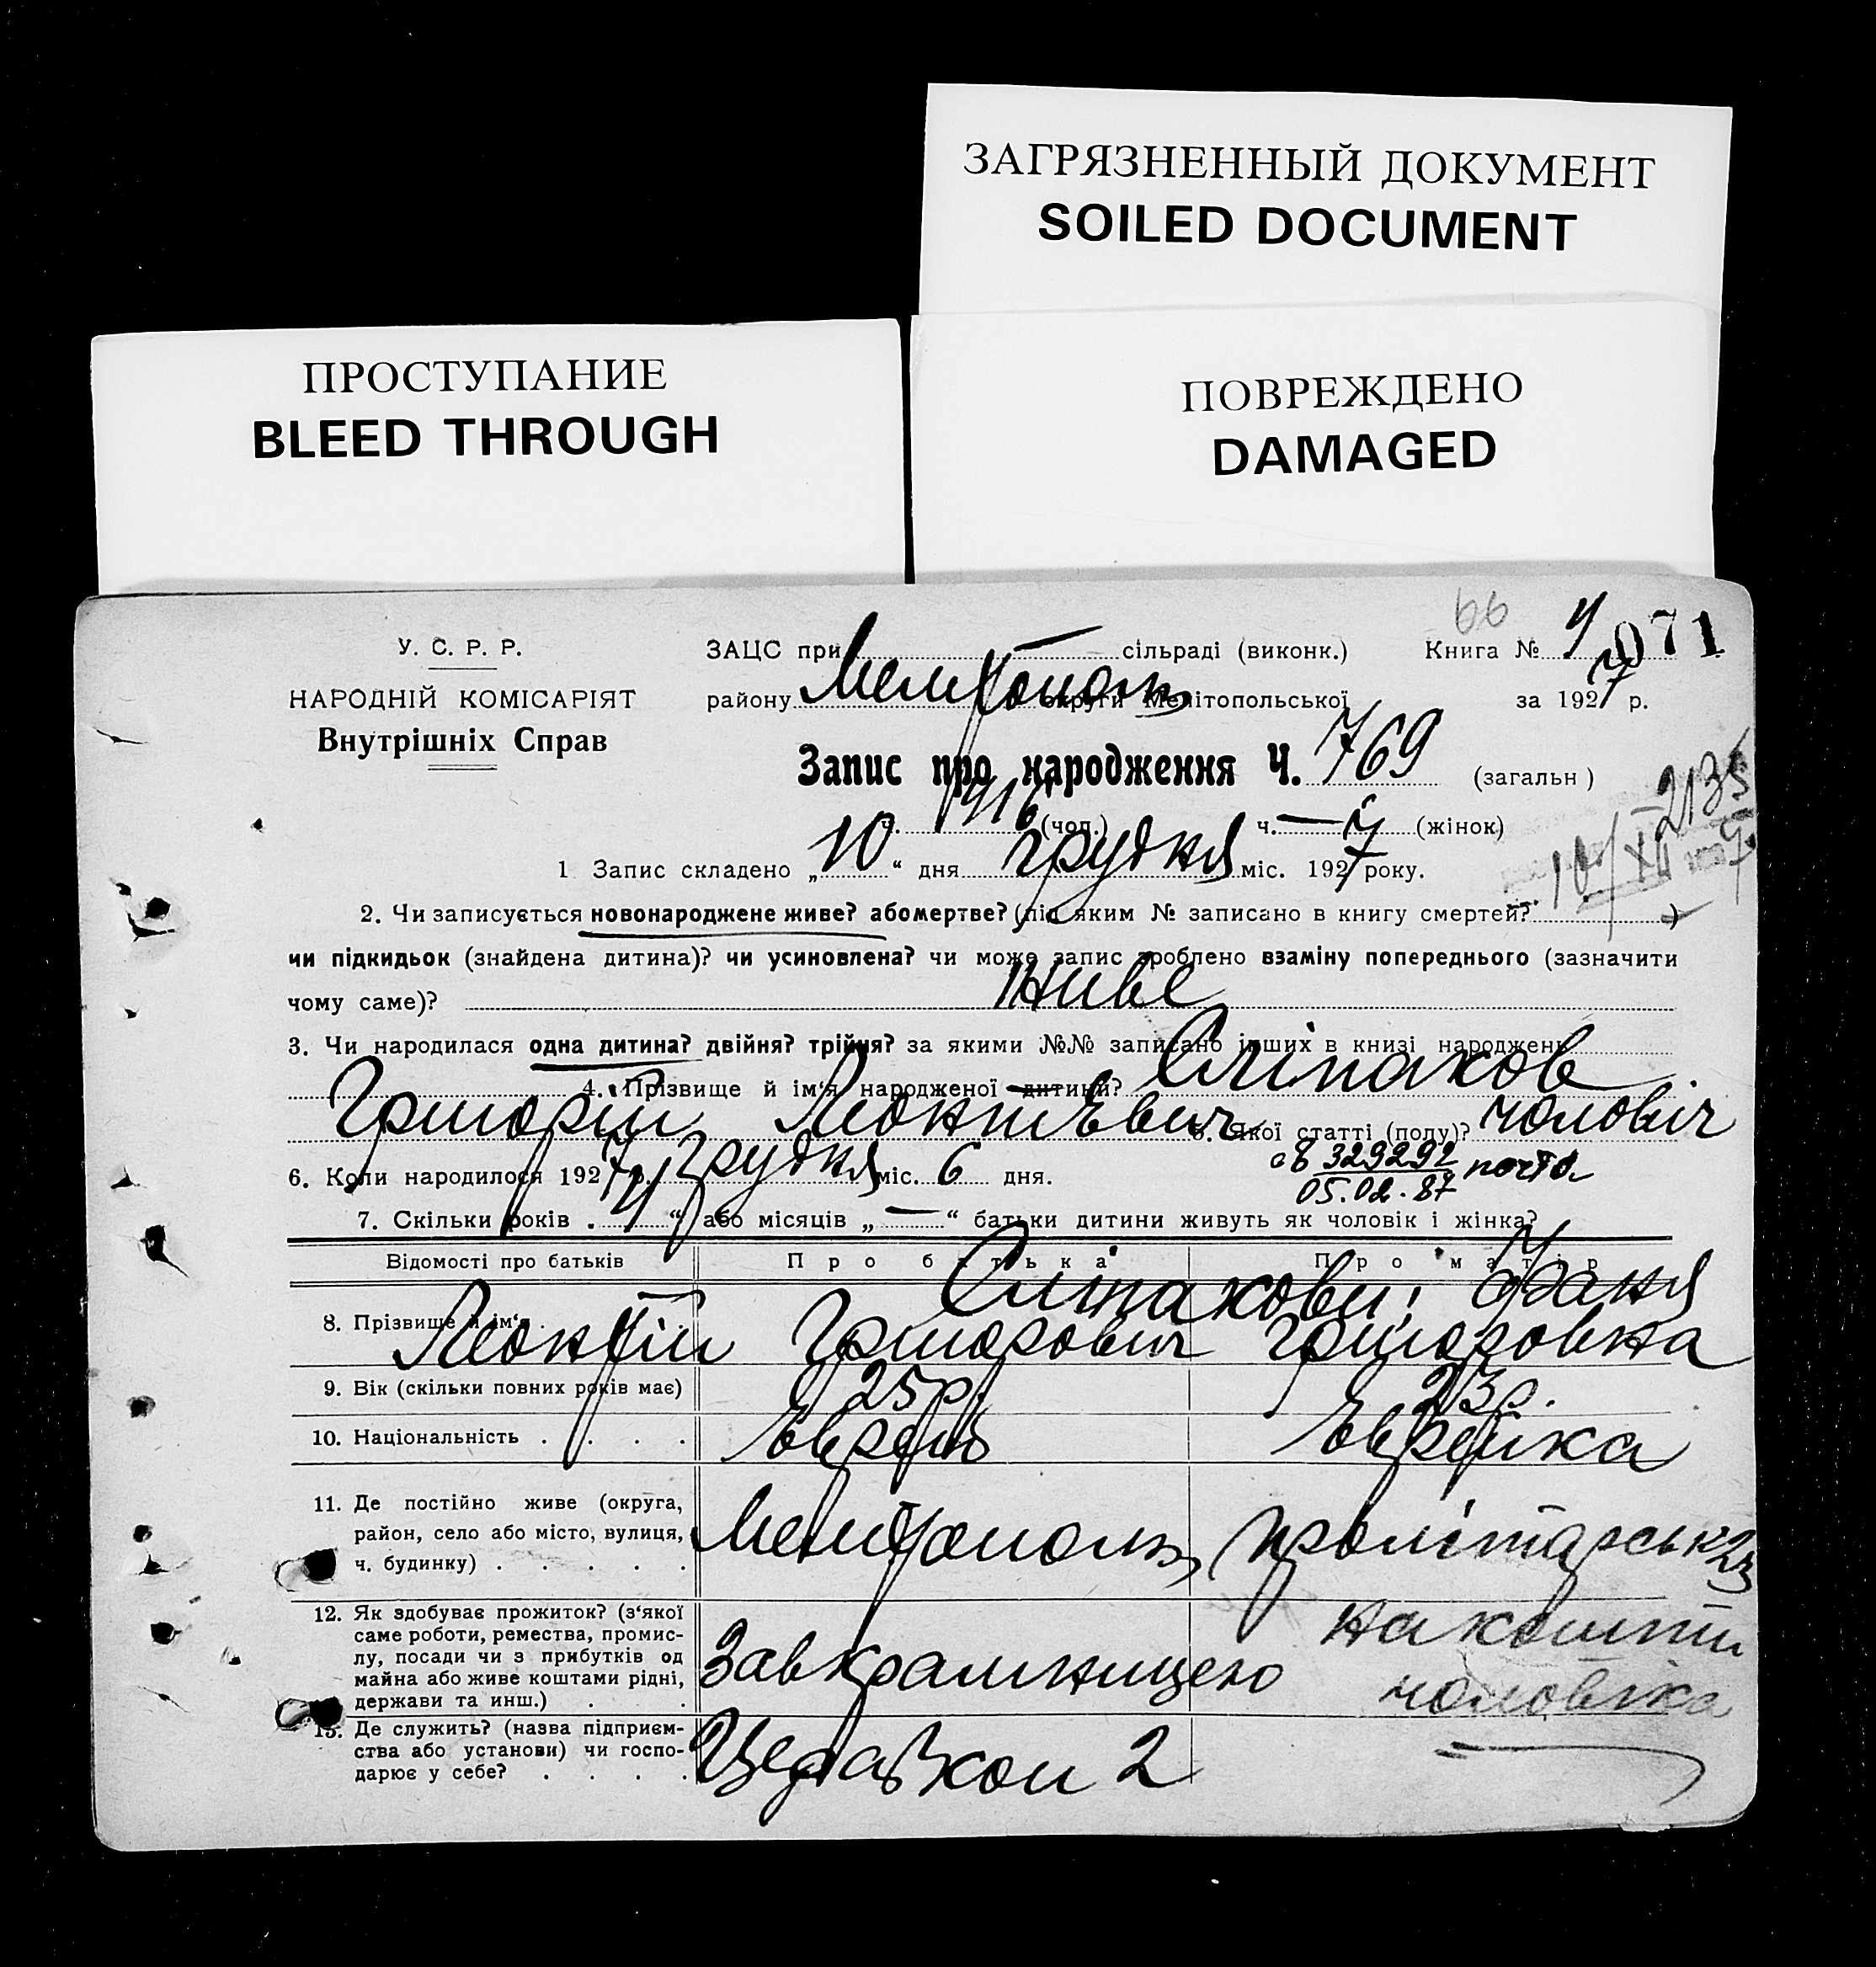 ЗАГРЯЗНЕННЫЙ ДОКУМЕНТ
SOILED DOCUMENT
ПРОСТУПАНИЕ
BLEED THROUGH
ПОВРЕЖДЕНО
DAMAGED
66
У. С. Р. Р.
НАРОДНІЙ КОМІСАРІЯТ
Внутрішніх Справ
ЗАЦС при сільраді (виконк.) Книга № 4 071
району Мелітополь округи Мелітопольської за 1927 р.
Запис про народження Ч. 769 (загальн)
ч. 416 (чол.) ч. — (жінок)
2135
1 Запис складено „10“ дня грудня міс. 1927 року.
10/XII
2. Чи записується новонароджене живе? або мертве? (під яким № записано в книгу смертей? )
чи підкидьок (знайдена дитина)? чи усиновлена? чи може запис зроблено взаміну попереднього (зазначити
чому саме)? Живе
3. Чи народилася одна дитина? двійня? трійня? за якими №№ записано інших в книзі народжень
4. Прізвище й ім‘я народженої дитини? Слітаков
Григорій Леонтьєвич 5. Якої статті (полу)? чоловіч
6. Коли народилося 1927 р. грудня міс. 6 дня.
329292
05.02.87
7. Скільки років „4“ або місяців „—“ батьки дитини живуть як чоловік і жінка?
Відомості про батьків Про батька Про матір
8. Прізвище й ім‘я Слітакови: Фаня
Леонтій Григорович Григоровна
9. Вік (скільки повних років має) 25 р. 23 р.
10. Національність . . . . Еврей Еврейка
11. Де постійно живе (округа,
район, село або місто, вулиця,
ч. будинку) . . . . . Мелітополь, Пролітарськ 23
12. Як здобуває прожиток? (з‘якої
саме роботи, ремества, промис-
лу, посади чи з прибутків од
майна або живе коштами рідні,
держави та инш.) . . Зав крамницею на кошти
чоловіка
13. Де служить? (назва підприєм-
ства або установи) чи госпо-
дарює у себе? . . . . Церабкоп 2